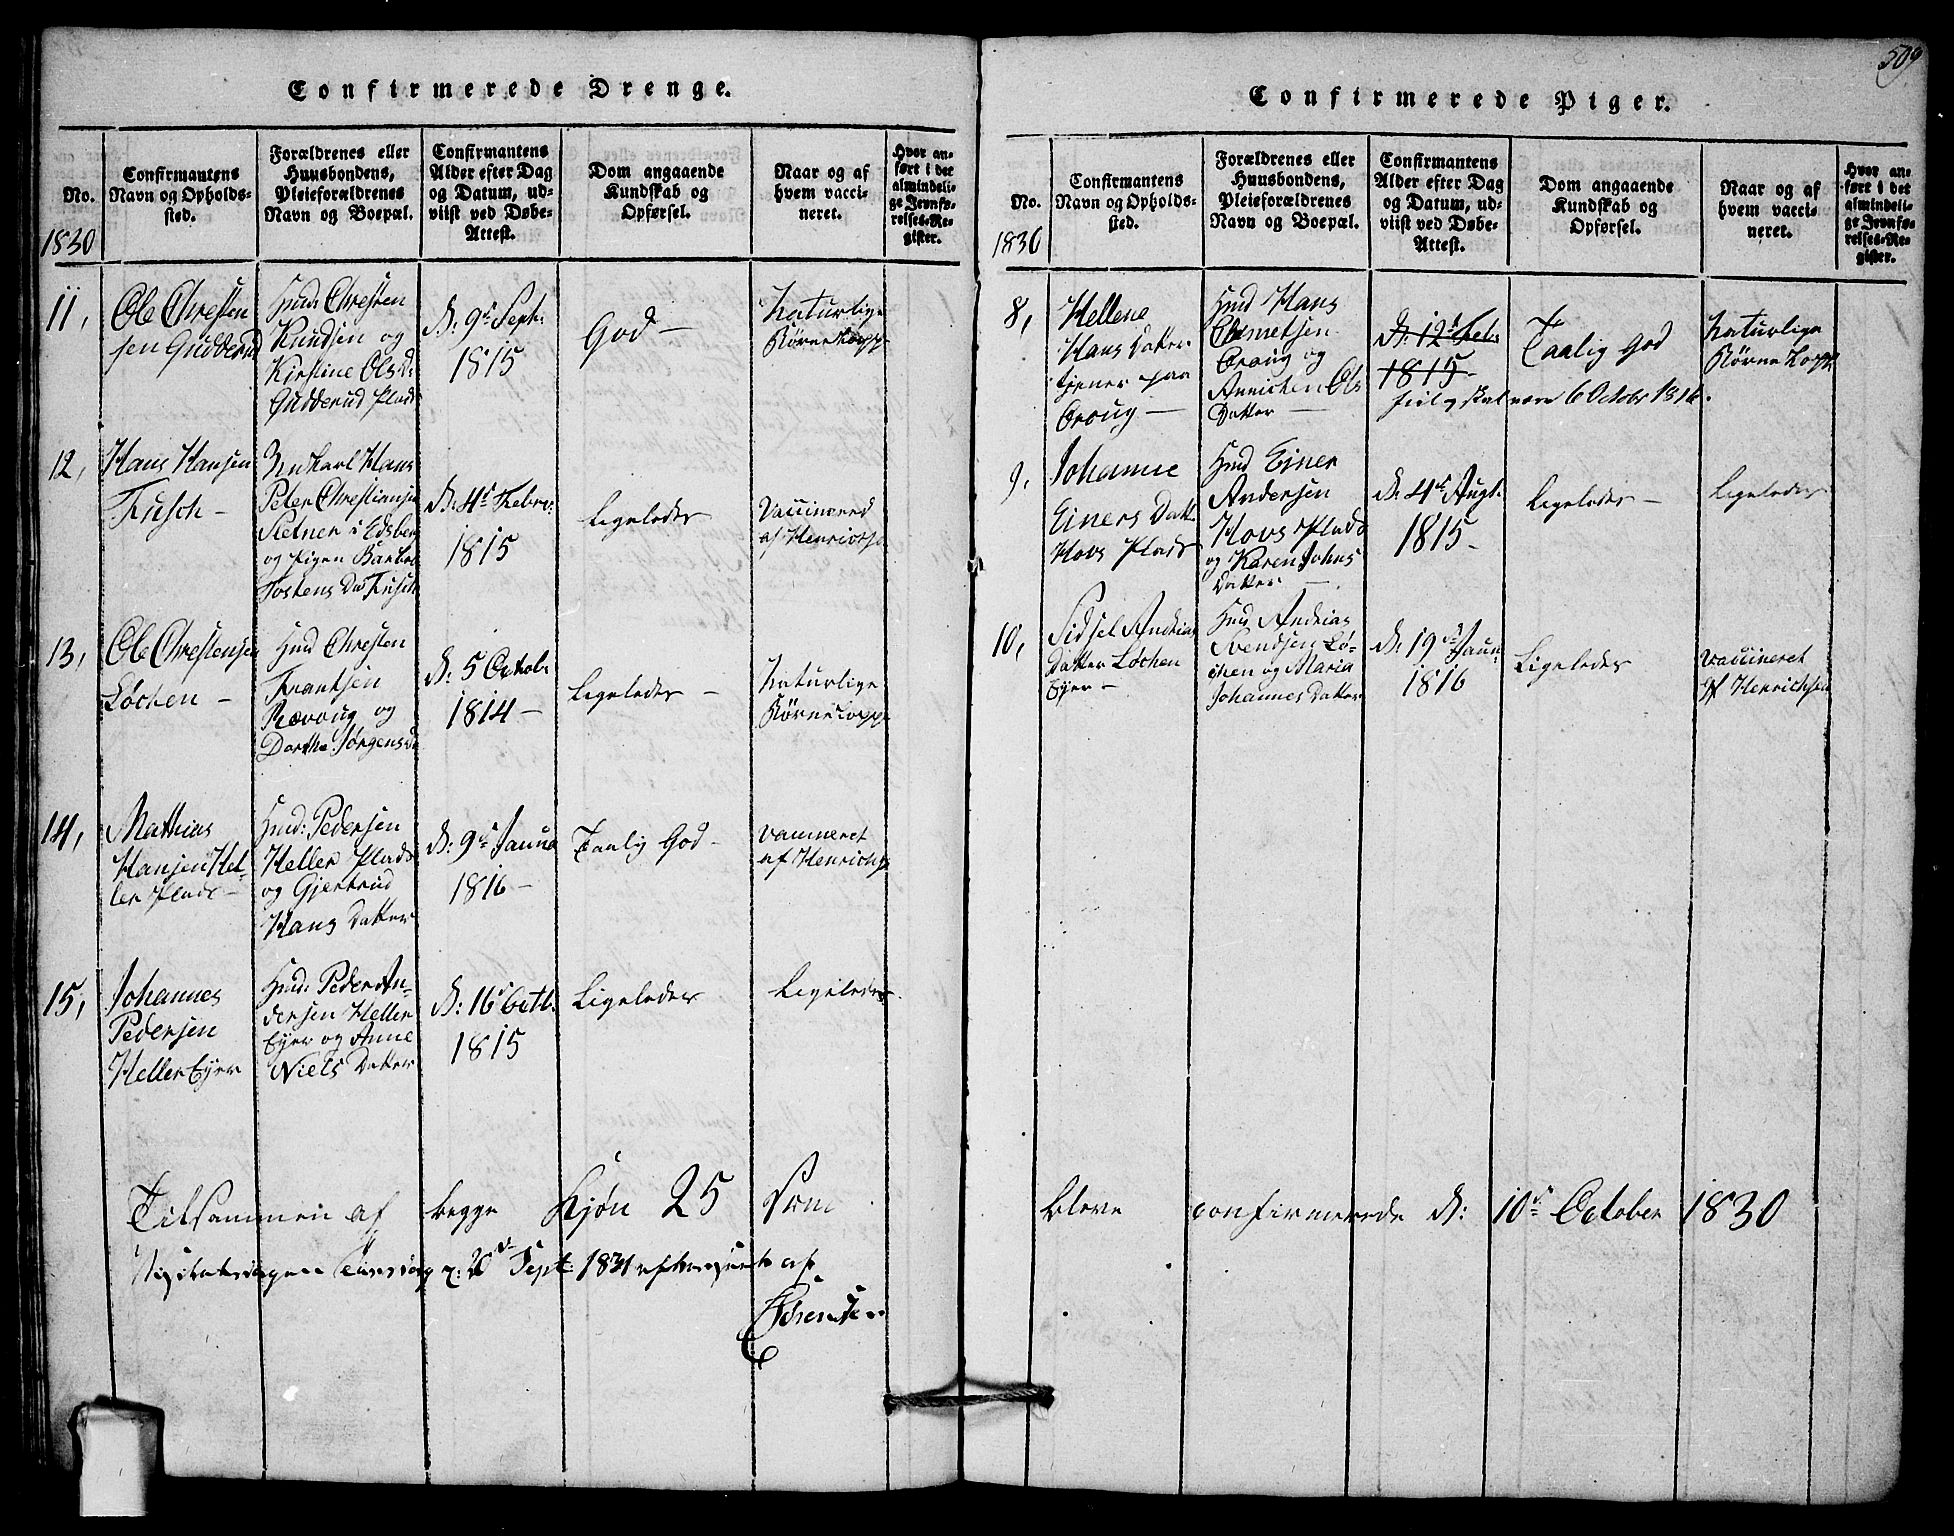 509
Confirmerede Drenge.
No.
1830
Confirmantens
Navn og Opholds-
sted.
Forældrenes eller
Huusbondens,
Pleieforældrenes
Navn og Boepæl.
Confirmantens
Alder efter Dag
og Datum, ud-
viist ved Døbe-
Attest.
Dom angaaende
Kundskab og
Opførsel.
Naar og af
hvem vacci-
neret.
Hvor an-
ført i det
almindeli-
ge Jevnfø-
relses-Re-
gister.
11,
Ole Christen
sen Gudderud
Huusm: Christen
Knudsen og
Kirstine Ols D:
Gudderud Plads
d: 9d Sept:
1815
God —
Naturlige
Børnekopp
12,
Hans Hansen
Fusch —
Unkarl Hans
Peter Christiansen
Sletner i Edsberg
og Pigen Barbro
Tostens Dat Fusch
d: 4d Febru:
1815
Ligeledes —
Vaccineret
af Henrichse
13,
Ole Christensen
Løchen —
Huusm Christen
Frantsen
Ræv oug og
Dorthe Jørgensd
d: 5 Octob:
1814 —
Ligeledes —
Naturlige
Børnekopp
14,
Mathias
Hansen Hel-
ler Plads —
Huusm: Pedersen
Heller Plads
og Gjertrud
Hans Datter
d: 9d Janua
1816 —
Taalig God —
vaccineret
af Henrichs
15,
Johannes
Pedersen
Heller Eyer
Huusm: Peder An-
dersen Heller
Eyer og Anne
Niels Datter
d: 16d Octb.
1815
Ligeledes
Ligeledes
Tilsammen af begge Kjøn 25 som
Visitatsdagen d: Sept: 1831 efterseet af
Sørensen
Confirmerede Piger.
No.
1830
Confirmantens
Navn og Opholds-
sted.
Forældrenes eller
Huusbondens,
Pleieforældrenes
Navn og Boepæl.
Confirmantens
Alder efter Dag
og Datum, ud-
viist ved Døbe-
Attest.
Dom angaaende
Kundskab og
Opførsel.
Naar og af
hvem vacci-
neret.
Hvor an-
ført i det
almindeli-
ge Jevnfø-
relses-Re-
gister.
8,
Hellene
Hans Datter
tjener paa
Oroug —
Huusm Hans
Oroug og
Annichen Ols
Datter —
d: 12d Feb:
1815 —
feil, skal være 6 Octobr 1816.
Taalig God
Naturlige
Børne Kopp
9,
Johanne
Einers Datt
Hovs Plads
Huusm Einer
Andersen
Hovs Plads
og Karen Johns
Datter —
d. 4d Augt.
1815 —
Ligeledes —
Ligeledes
10,
Sidsel Andreas
Datter Løchen
Eyer —
Huusm Andreas
Svendsen Lø-
chen og Maria
Johannes Datter
d: 19d Jann
1816
Ligeledes
Vaccineret
af Henrichsen
bleve confirmerede d: 10d October 1830